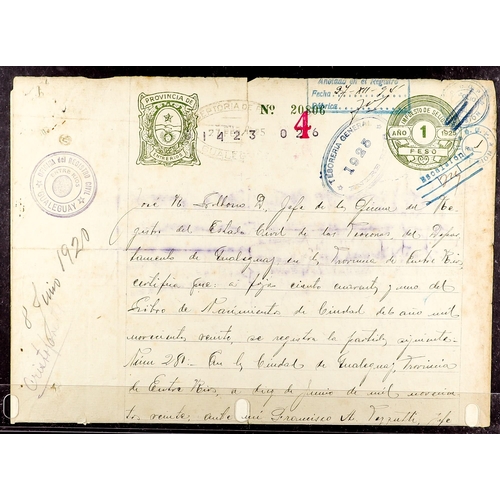 Anotado en el Registro
Fecha 27-XII-25
PROVINCIA DE
ENTRE RIOS
Nº 20806
4
1 4 2 3 0 2 6
TESORERIA GENERAL
1925
IMPUESTO DE SELLOS
AÑO 1 1925
PESO
GUALEGUAY
José M. D. Jefe de la Oficina del Re-
gistro del Estado Civil de las Personas del Depar-
tamento de Gualeguay en la Provincia de Entre Rios,
certifica que: a fojas ciento cuarenta y uno del
Libro de Nacimientos de Ciudad del año mil
novecientos veinte, se registra la partida siguiente:
Núm 281. En la Ciudad de Gualeguay, Provincia
de Entre Rios, a diez de Junio de mil novecien-
tos veinte, ante mi Francisco A. Jefe
8 Junio 1920